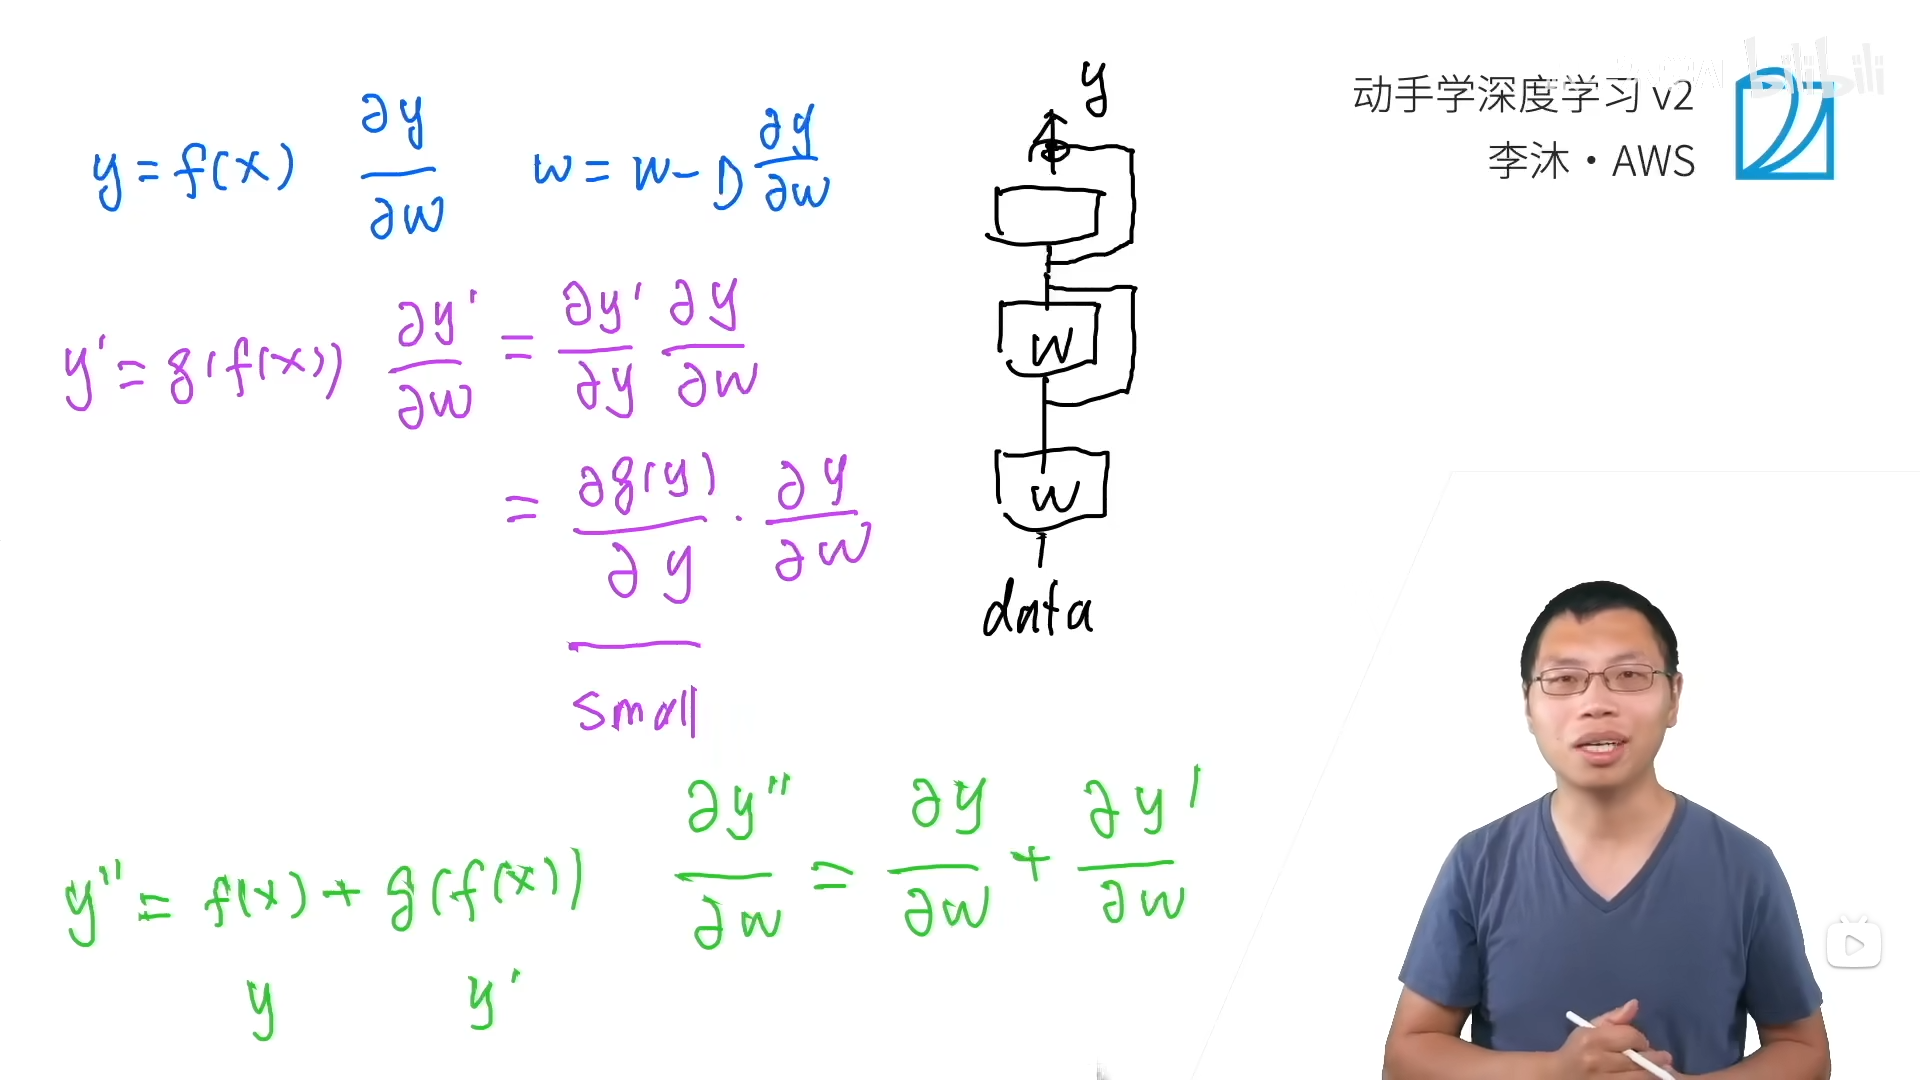 动手学深度学习 v2
李沐·AWS
bilibili
y = f(x) ∂y/∂w w = w - η ∂y/∂w
y' = g(f(x)) ∂y'/∂w = ∂y'/∂y ∂y/∂w
= ∂g(y)/∂y · ∂y/∂w
small
y'' = f(x) + g(f(x)) ∂y''/∂w = ∂y/∂w + ∂y'/∂w
y y'
y
w
w
data